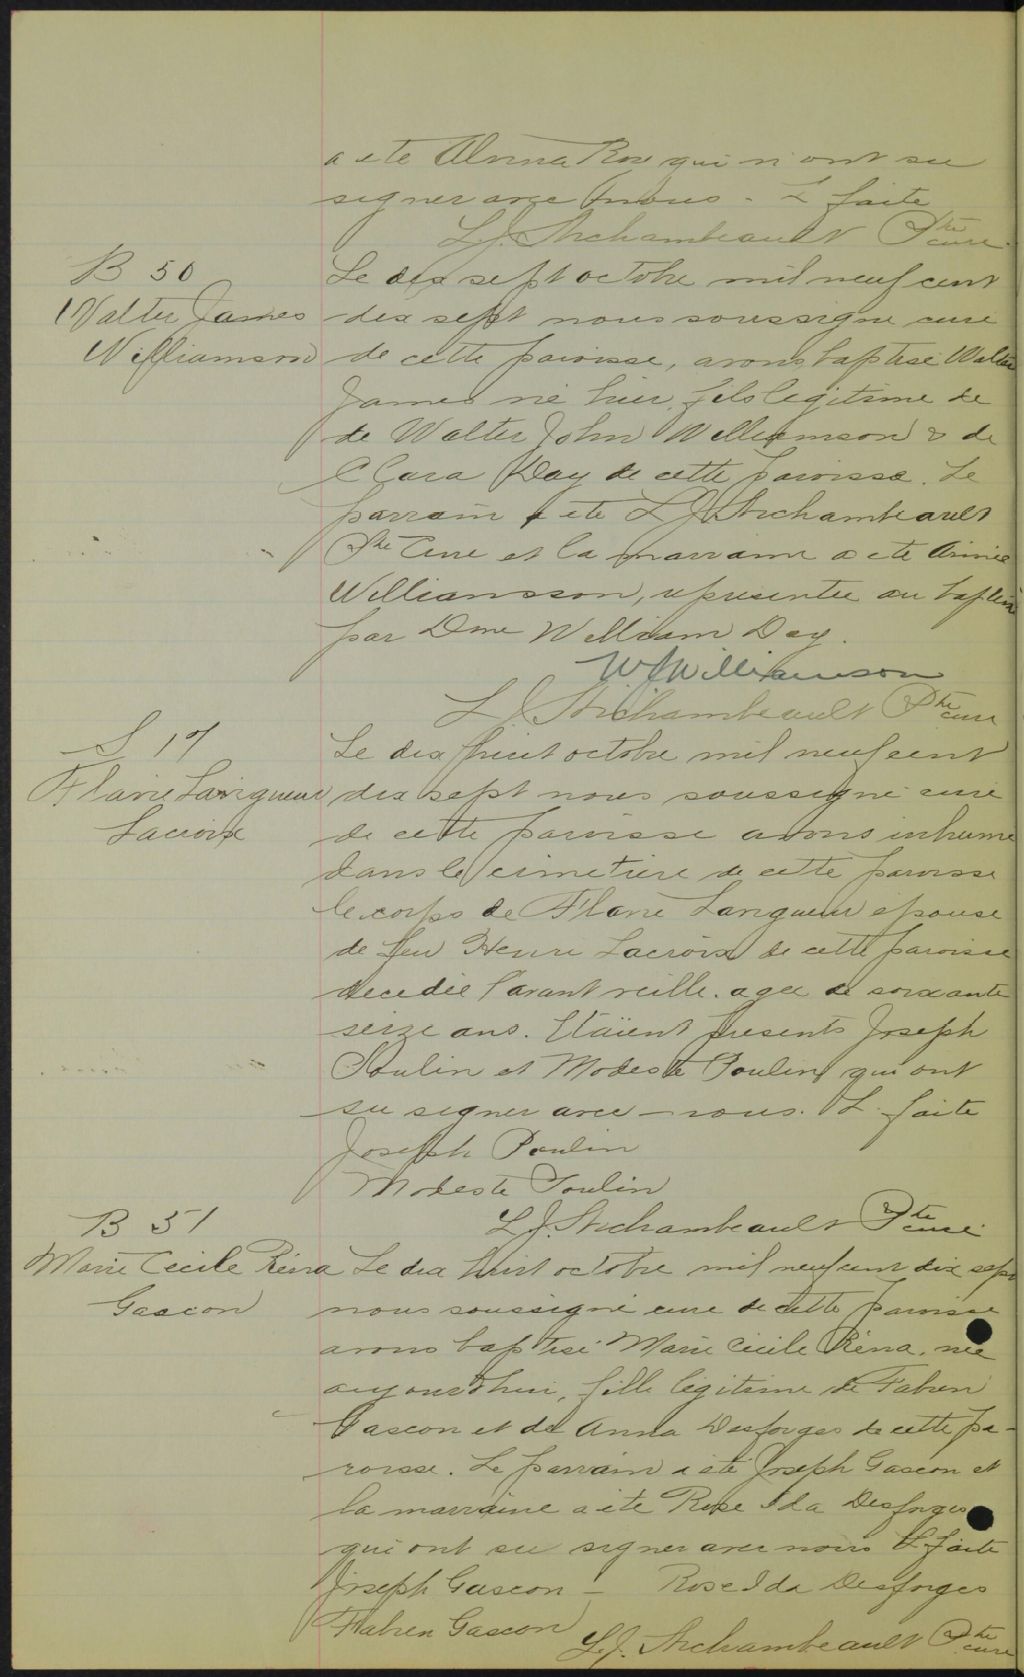 a ete Alvina Roy qui n'ont su
signer avec nous. L. faite
L.J. Archambeault Ptre curé
B 50
Walter James
Williamson
Le dix sept octobre mil neuf cent
dix sept nous soussigne curé
de cette paroisse, avons baptisé Walter
James né hier, fils legitime de
de Walter John Williamson & de
Clara Day de cette paroisse. Le
parrain a ete L J Archambeault
Ptre Curé et la marraine a ete
Williamsson, representée au baptême
par Dme William Day.
WJWilliamson
L J Archambeault Ptre curé
S 17
Flavie Larigueur
Lacroix
Le dix huit octobre mil neuf cent
dix sept nous soussigné curé
de cette paroisse avons inhumé
dans le cimetiere de cette paroisse
le corps de Flavie Larigueur epouse
de feu Henri Lacroix de cette paroisse
decedée l'avant veille. agee de soixante
seize ans. Etaient presents Joseph
Poulin et Modeste Poulin qui ont
su signer avec nous. L. faite
Joseph Poulin
Modeste Poulin
L.J. Archambeault Ptre curé
B 51
Marie Cecile Réina
Gascon
Le dix huit octobre mil neuf cent dix sept
nous soussigné curé de cette paroisse
avons baptisé Marie Cécile Réina, née
aujourd'hui, fille légitime de Fabien
Gascon et de Anna Desforges de cette pa-
roisse. Le parrain a été Joseph Gascon et
la marraine a ete Rose Ida Desforges
qui ont su signer avec nous L. faite
Joseph Gascon - Rose Ida Desforges
Fabien Gascon
L.J. Archambeault Ptre curé